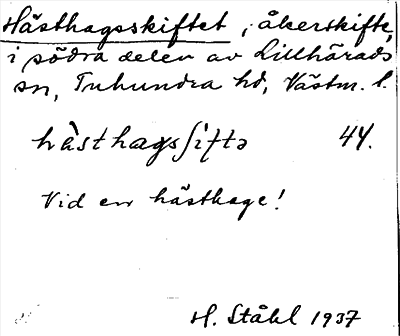 Hästhagsskiftet, åkerskifte,
i södra delen av Lillhärads
sn, Tuhundra hd, Västm. l.
hästhagsʃiftə 44.
Vid en hästhage!
H. Ståhl 1937